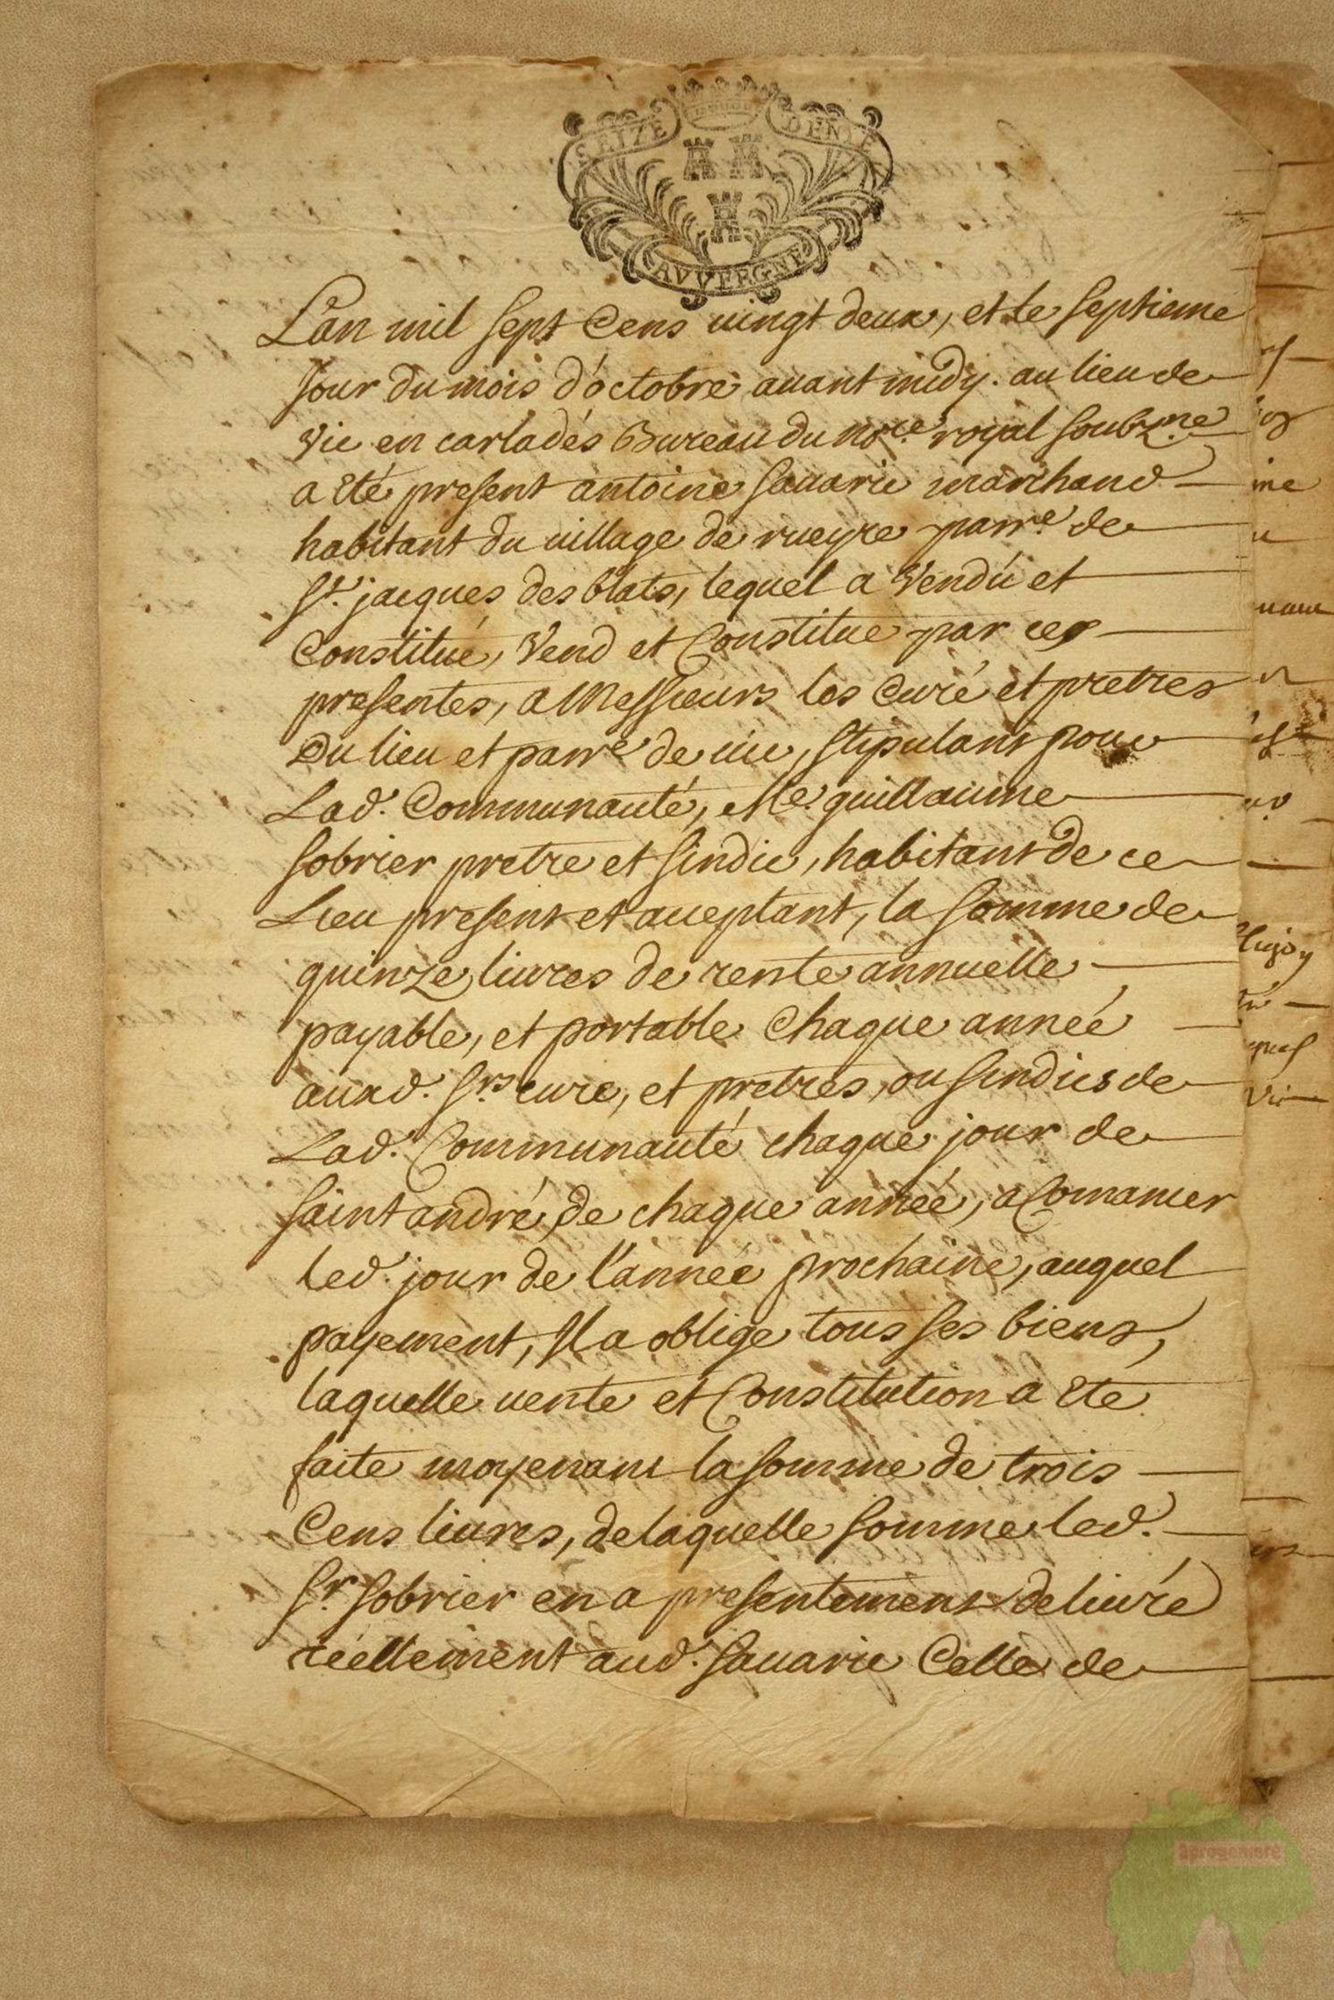 SEIZE DEN
AVVERGNE
L'an mil sept Cens vingt deux, et le septieme
Jour du mois d'octobre avant midy. au lieu de
Vic en carladés Bureau du no.re royal soubz.ne
a eté present antoine savarie marchand
habitant du village de rueyre parr.e de
S.t jacques des blats, lequel a Vendu et
Constitué, Vend et Constitue par ces
presentes, a Messieurs les Curé et pretres
Du lieu et parr.e de vic, stipulant pour
Lad. Communauté, M.e guillaume
sobrier pretre et sindic, habitant de ce
Lieu present et aceptant, la somme de
quinze livres de rente annuelle
payable, et portable Chaque année
auxd. s.rs cure, et pretres, ou sindics de
Lad. Communauté chaque jour de
saint andré, de chaque année, a Comancer
led. jour de l'année prochaine, auquel
payement, Il a oblige tous ses biens,
laquelle vente et Constitution a eté
faite moyenant la somme de trois
Cens livres, de laquelle somme led.
S.r sobrier en a presentement delivré
réellement aud. savarie Celle de
aprogemere